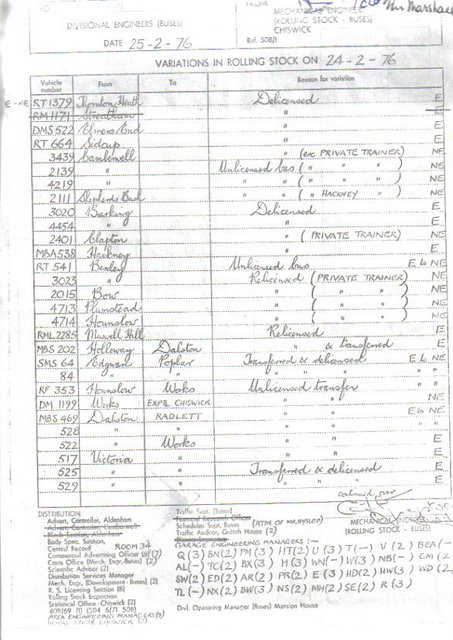 DIVISIONAL ENGINEERS (BUSES)
DATE 25-2-76
FROM
MECHANICAL ENGINEER
(ROLLING STOCK - BUSES)
CHISWICK
Mr Marshall
VARIATIONS IN ROLLING STOCK ON 24-2-76
Vehicle number From To Reason for variation
E - NE RT 1379 Thornton Heath Delicensed E
RM 1171 Streatham " E
DMS 522 Elmers End " E
RT 664 Sidcup " E
3439 Camberwell " (exc PRIVATE TRAINER) NE
2139 " Unlicensed bus ( " " ) NE
4219 " " " ( " " ) NE
2111 Shepherds Bush " " ( " HACKNEY " ) NE
3020 Barking Delicensed E
4454 " " E
2401 Clapton " ( PRIVATE TRAINER) NE
MBA 538 Hackney " E
RT 541 Bexley Unlicensed bus E to NE
3023 " Relicensed (PRIVATE TRAINER) NE
2015 Bow " ( " " ) NE
4713 Plumstead " ( " " ) NE
4714 Hounslow " ( " " ) NE
RML 2285 Muswell Hill Relicensed E
MBS 202 Holloway Dalston " & transferred E
SMS 64 Edgware Poplar Transferred & delicensed E to NE
84 " " " " "
RF 353 Hounslow Works Unlicensed transfer "
DM 1199 Works EXPTL CHISWICK " " NE
MBS 469 Dalston RADLETT " " E to NE
528 " " " " "
522 " Works " " E
517 Victoria " " " E
525 " " Transferred & delicensed E
529 " " " " E
continued over
DISTRIBUTION
Advert. Controller, Aldenham
Body Spec. Section,
Central Record ROOM 34
Commercial Advertising Officer (6)
Costs Office (Mech. Engr.-Buses) (2)
Scientific Adviser (2)
Distribution Services Manager
Mech. Engr. (Development - Buses) (2)
R. S. Licensing Section (8)
Rolling Stock Inspection
Statistical Office - Chiswick (2)
AREA ENGINEERING MANAGERS
Traffic Supt. (Buses)
Schedules Supt. Buses
Traffic Auditor, Griffith House (2)
MECHANICAL ENGINEER
(ROLLING STOCK - BUSES)
GARAGE ENGINEERING MANAGERS :-
Q (3) BN (2) PM (3) HT (2) U (3) T (-) V (2) BEA (-)
AL (-) TC (2) BX (3) H (3) WN (-) W (3) NB (-) GM (2)
SW (2) ED (2) AR (2) PR (2) E (3) HD (2) HW (3) WD (2)
TL (-) NX (2) BW (3) NS (2) MH (2) SE (2) R (3)
Divl. Operating Manager (Buses) Mansion House